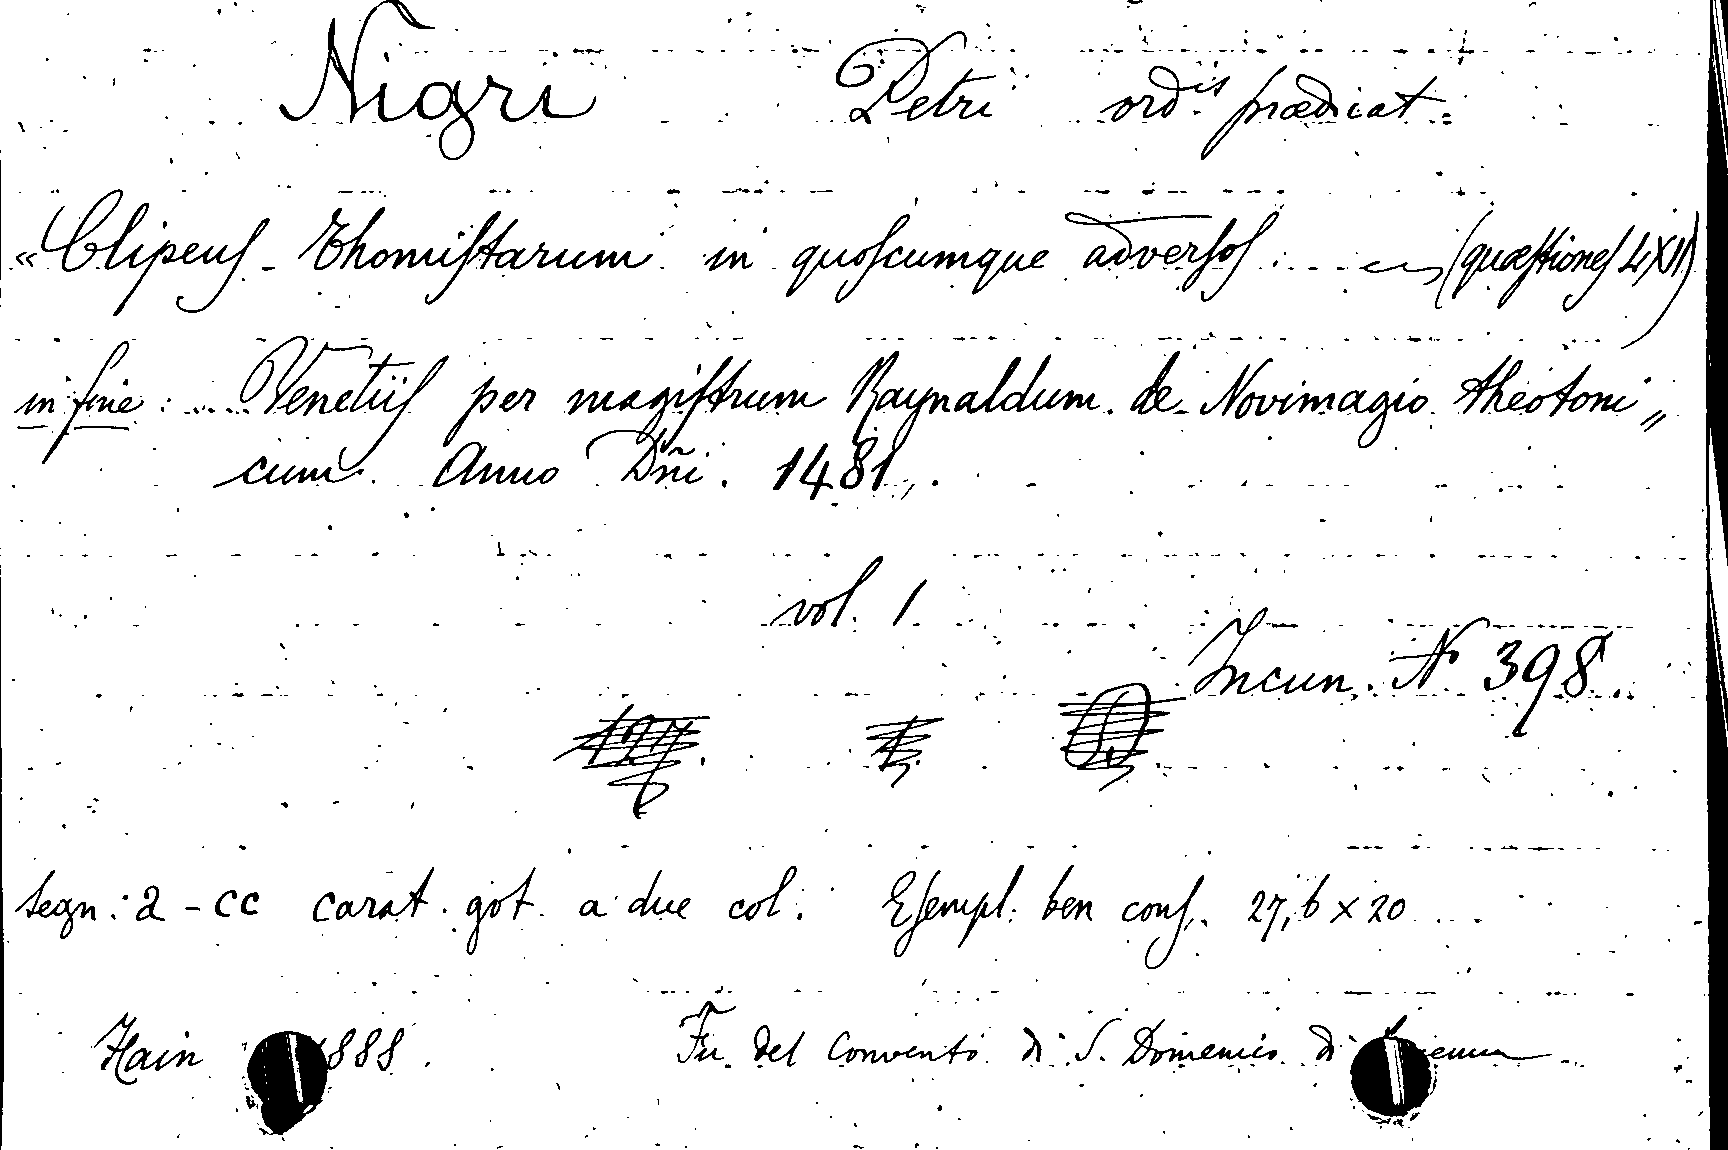 Nigri Petri ord.is prædicat.
« Clipeus Thomistarum in quoscumque adversos .... (quæstiones LXII)
in fine: .... Venetiis per magistrum Raynaldum de Novimagio theotoni„
cum. Anno Dñi. 1481 „.
vol. 1
Incun. N° 398
segn: a - cc carat. got. a due col. Esempl. ben cons. 27,6 x 20
Hain 888. Fu del Convento di S. Domenico di